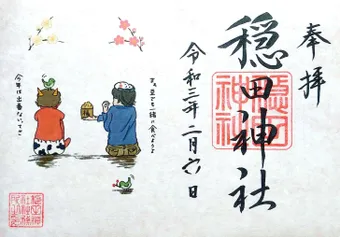 奉拝
穏田神社
穏田
神社
令和三年二月六日
さぁ、豆でも一緒に食べようよ
今年は出番ない